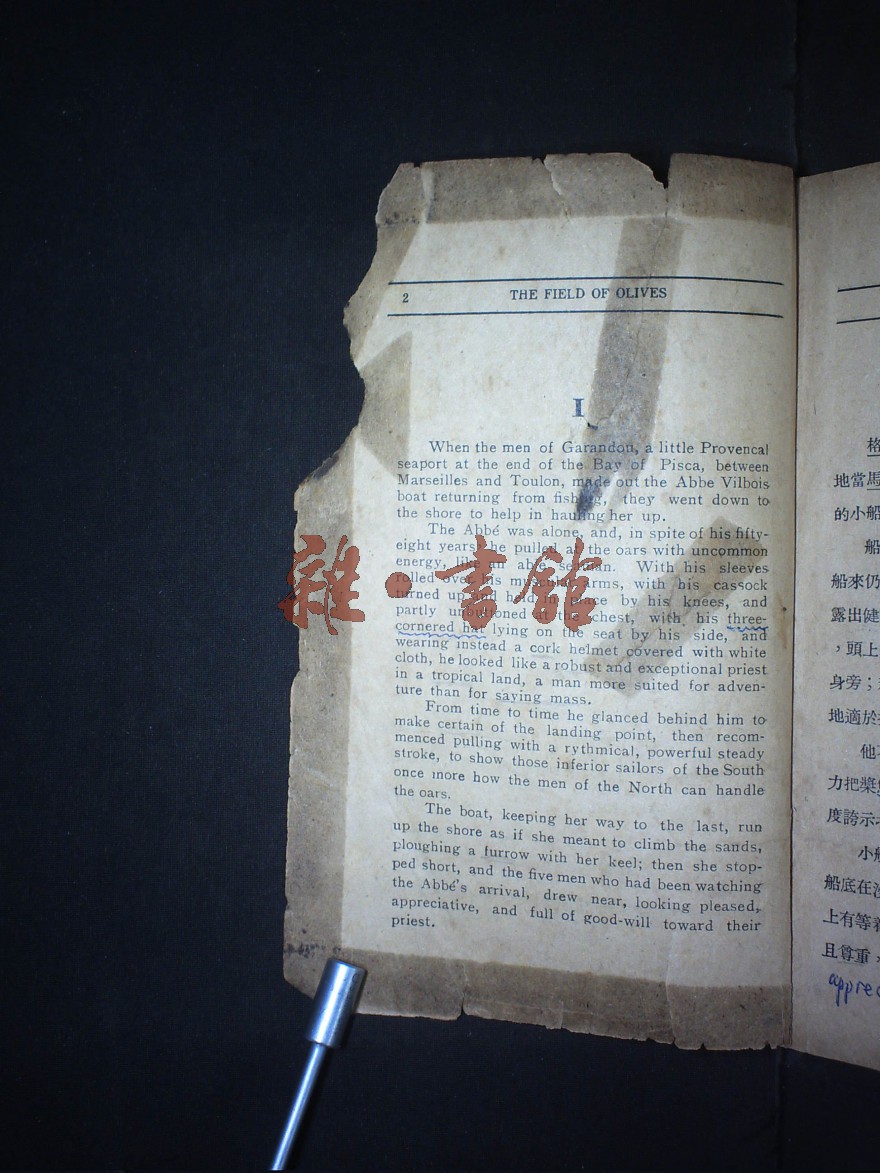 2 THE FIELD OF OLIVES
I
When the men of Garandou, a little Provencal
seaport at the end of the Bay of Pisca, between
Marseilles and Toulon, made out the Abbe Vilbois
boat returning from fishing, they went down to
the shore to help in hauling her up.
The Abbé was alone, and, in spite of his fifty-
eight years, he pulled at the oars with uncommon
energy, like an able seaman. With his sleeves
rolled over his muscular arms, with his cassock
turned up and held in place by his knees, and
partly unbuttoned at the chest, with his three-
cornered hat lying on the seat by his side, and
wearing instead a cork helmet covered with white
cloth, he looked like a robust and exceptional priest
in a tropical land, a man more suited for adven-
ture than for saying mass.
From time to time he glanced behind him to
make certain of the landing point, then recom-
menced pulling with a rythmical, powerful steady
stroke, to show those inferior sailors of the South
once more how the men of the North can handle
the oars.
The boat, keeping her way to the last, run
up the shore as if she meant to climb the sands,
ploughing a furrow with her keel; then she stop-
ped short, and the five men who had been watching
the Abbé's arrival, drew near, looking pleased,
appreciative, and full of good-will toward their
priest.
雜·書館
格
地當馬
的小船
船
船來仍
露出健
，頭上
身旁；
地適於
他
力把槳
度誇示
小船
船底在沙
上有等着
且尊重，
apprec